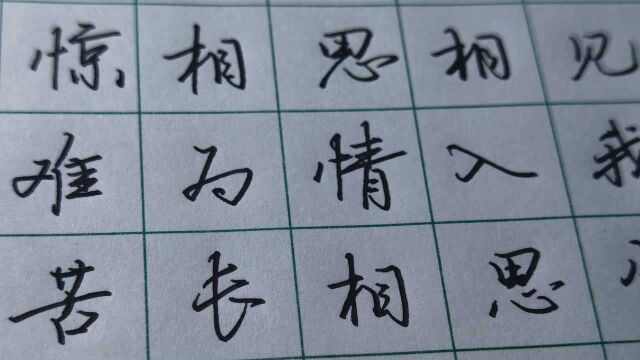 惊相思相见
难为情入我
苦长相思